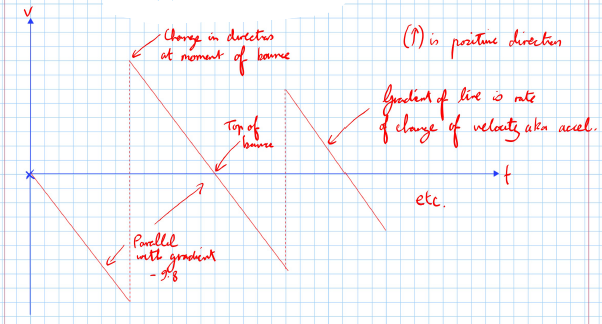 v
Change in direction
at moment of bounce
(↑) is positive direction
Gradient of line is rate
of change of velocity aka accel.
Top of
bounce
t
etc.
Parallel
with gradient
-9.8